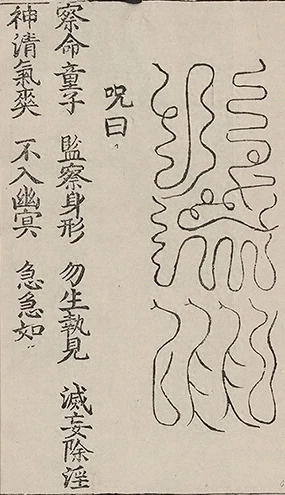 呪曰
察命童子 監察身形 勿生執見 滅妄除淫
神清氣爽 不入幽冥 急急如